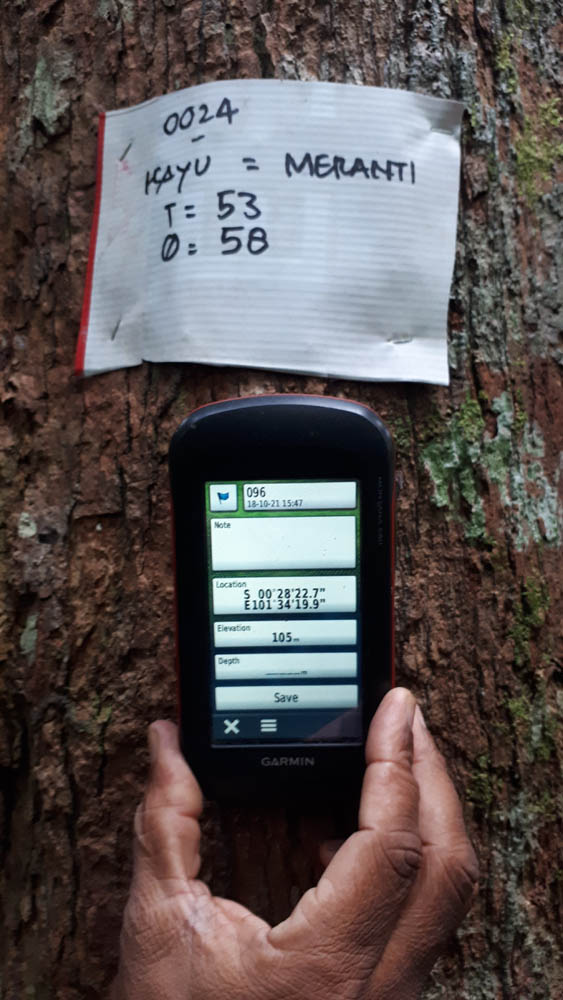 0024
KAYU = MERANTI
T = 53
Ø = 58
096
18-10-21 15:47
Note
Location
S 00°28'22.7"
E101°34'19.9"
Elevation
105 m
Depth
_____m
Save
GARMIN